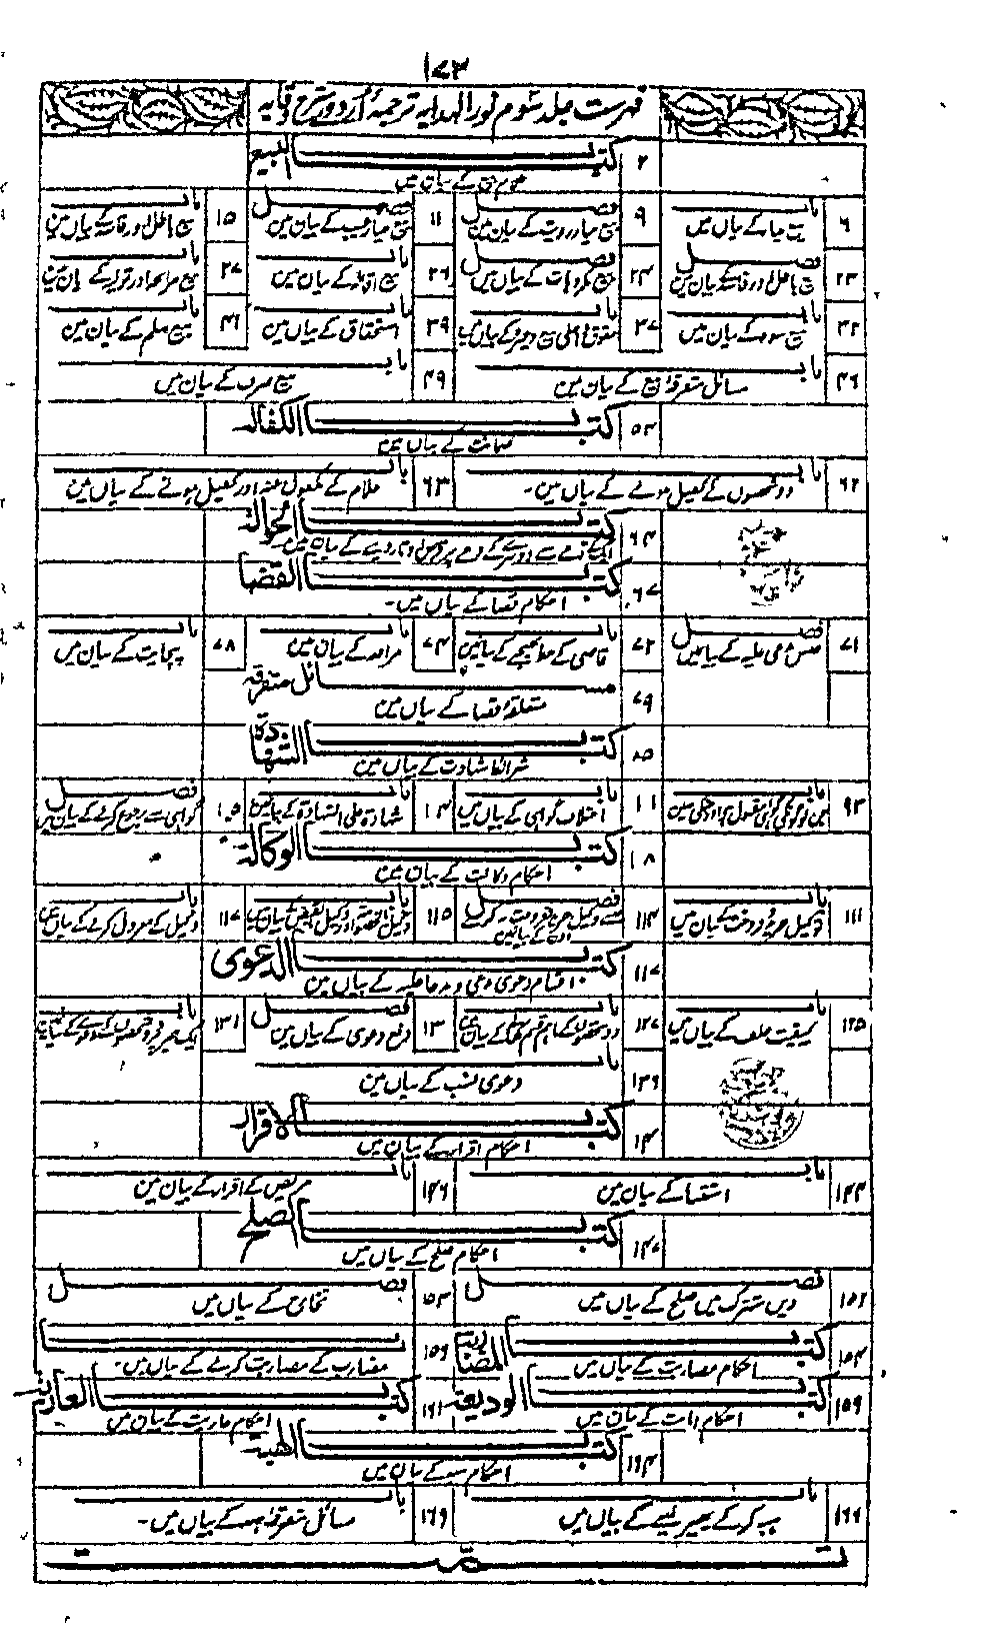 ۱۷۳
فہرست جلد سوم نور الہدایہ ترجمۂ اردو شرح وقایہ
۲ کتاب البیع
بیع کے بیان میں
۶ باب بیع خیار کے بیان میں
۹ فصل بیع خیار رویت کے بیان میں
۱۱ فصل بیع خیار عیب کے بیان میں
۱۵ باب بیع باطل اور فاسد کے بیان میں
۲۳ فصل بیع باطل اور فاسد کے بیان میں
۲۴ فصل بیع مکروہات کے بیان میں
۲۶ باب بیع اقالہ کے بیان میں
۲۷ باب بیع مرابحہ اور تولیہ کے بیان میں
۳۲ باب بیع سود کے بیان میں
۳۷ باب حقوق کے بیان میں
۳۹ باب استحقاق کے بیان میں
۴۱ باب بیع سلم کے بیان میں
۴۶ باب مسائل متفرقہ بیع کے بیان میں
۴۹ باب بیع صرف کے بیان میں
۵۳ کتاب الکفالہ
ضمانت کے بیان میں
۶۲ باب دو شخصوں کے کفیل ہونے کے بیان میں۔
۶۳ باب غلام کے مکفول عنہ اور کفیل ہونے کے بیان میں
۶۴ کتاب الحوالہ
ایک ذمے سے دوسرے کے ذمے پر قرض اوتار دینے کے بیان میں۔
۶۷ کتاب القضا
احکام قضا کے بیان میں۔
۷۱ فصل حبس مدعی علیہ کے بیان میں
۷۲ باب قاضی کے خط بھیجنے کے بیان میں
۷۴ باب مرافعہ کے بیان میں
۷۸ باب پنچایت کے بیان میں
۷۹ مسائل متفرقہ
متعلقۂ قضا کے بیان میں
۸۵ کتاب الشہادۃ
شرائط شہادت کے بیان میں
۹۳ باب
۱۰۱ باب اختلاف گواہی کے بیان میں
۱۰۴ باب شہادۃ علی الشہادۃ کے بیان میں
۱۰۵ فصل گواہی سے رجوع کرنے کے بیان میں
۱۰۸ کتاب الوکالۃ
احکام وکالت کے بیان میں
۱۱۱ باب وکیل خرید و فروخت کے بیان میں
۱۱۴ فصل
۱۱۵ باب وکیل بالخصومۃ اور وکیل بالقبض کے بیان میں
۱۱۷ باب وکیل کے معزول کرنے کے بیان میں
۱۱۷ کتاب الدعوی
اقسام دعوی و مدعی و مدعا علیہ کے بیان میں
۱۲۵ باب کیفیت حلف کے بیان میں
۱۲۷ باب دو شخصوں کے باہم قسم کھانے کے بیان میں
۱۳۰ فصل دفع دعوی کے بیان میں
۱۳۱ باب ایک چیز پر دو شخصوں کے دعوے کے بیان میں
۱۳۶ باب دعوی نسب کے بیان میں
۱۴۰ کتاب الاقرار
احکام اقرار کے بیان میں
۱۴۳ باب استثنا کے بیان میں
۱۴۶ باب مریض کے اقرار کے بیان میں
۱۴۷ کتاب الصلح
احکام صلح کے بیان میں
۱۵۲ فصل دین مشترک میں صلح کے بیان میں
۱۵۳ فصل تخارج کے بیان میں
۱۵۴ کتاب المضاربۃ
احکام مضاربت کے بیان میں
۱۵۶ باب مضارب کے مضاربت کرنے کے بیان میں۔
۱۵۹ کتاب الودیعۃ
احکام امانت کے بیان میں
۱۶۱ کتاب العاریۃ
احکام عاریت کے بیان میں
۱۶۴ کتاب الھبۃ
احکام ہبہ کے بیان میں
۱۶۶ باب ہبہ کر کے پھیر لینے کے بیان میں
۱۶۹ باب مسائل متفرقہ ہبہ کے بیان میں۔
تمت